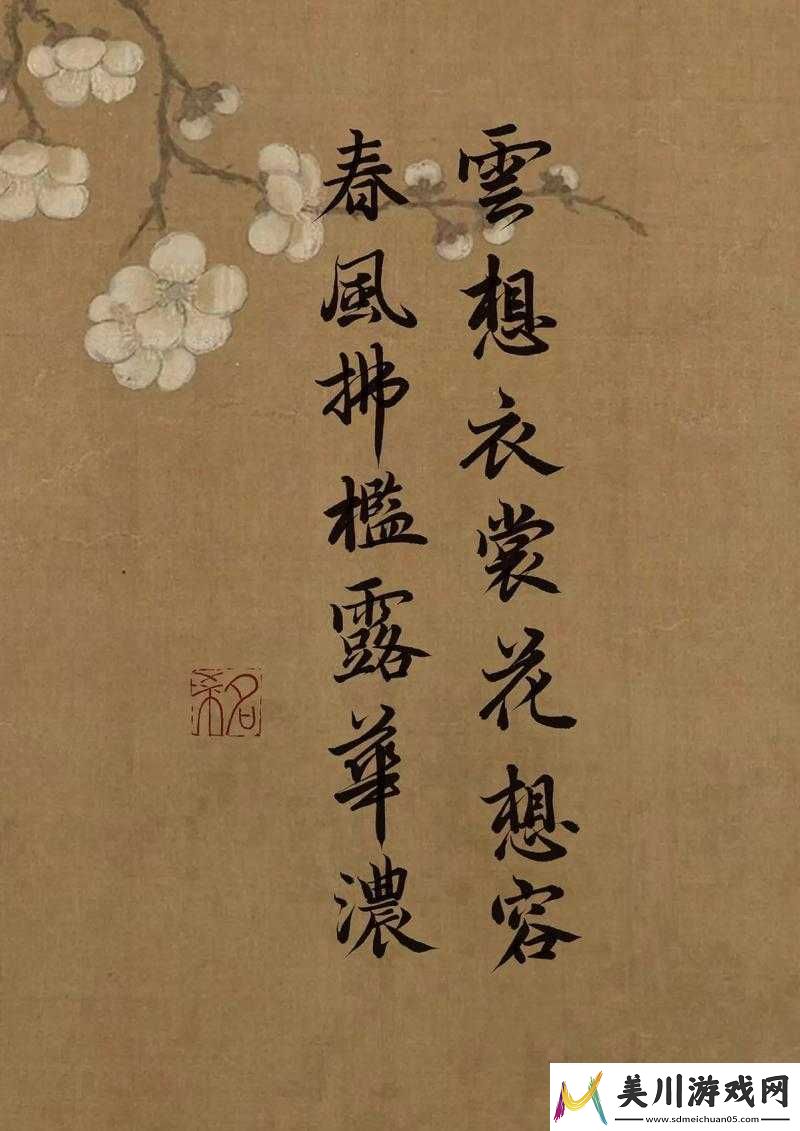 雲想衣裳花想容
春風拂檻露華濃
美川游戏网
www.sdmeichuan05.com